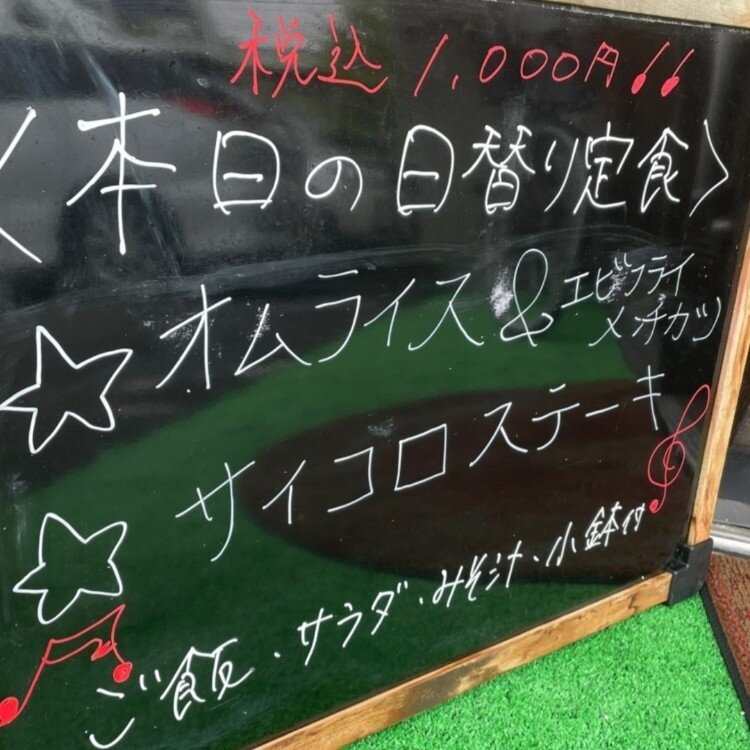 税込 1,000円!!
〈本日の日替り定食〉
☆ オムライス & エビフライ
メンチカツ
☆ サイコロステーキ
ご飯・サラダ・みそ汁・小鉢付